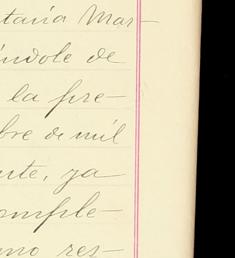 taria Mar-
índole de
la pre-
bre de mil
nte, ya
omple-
mo res-